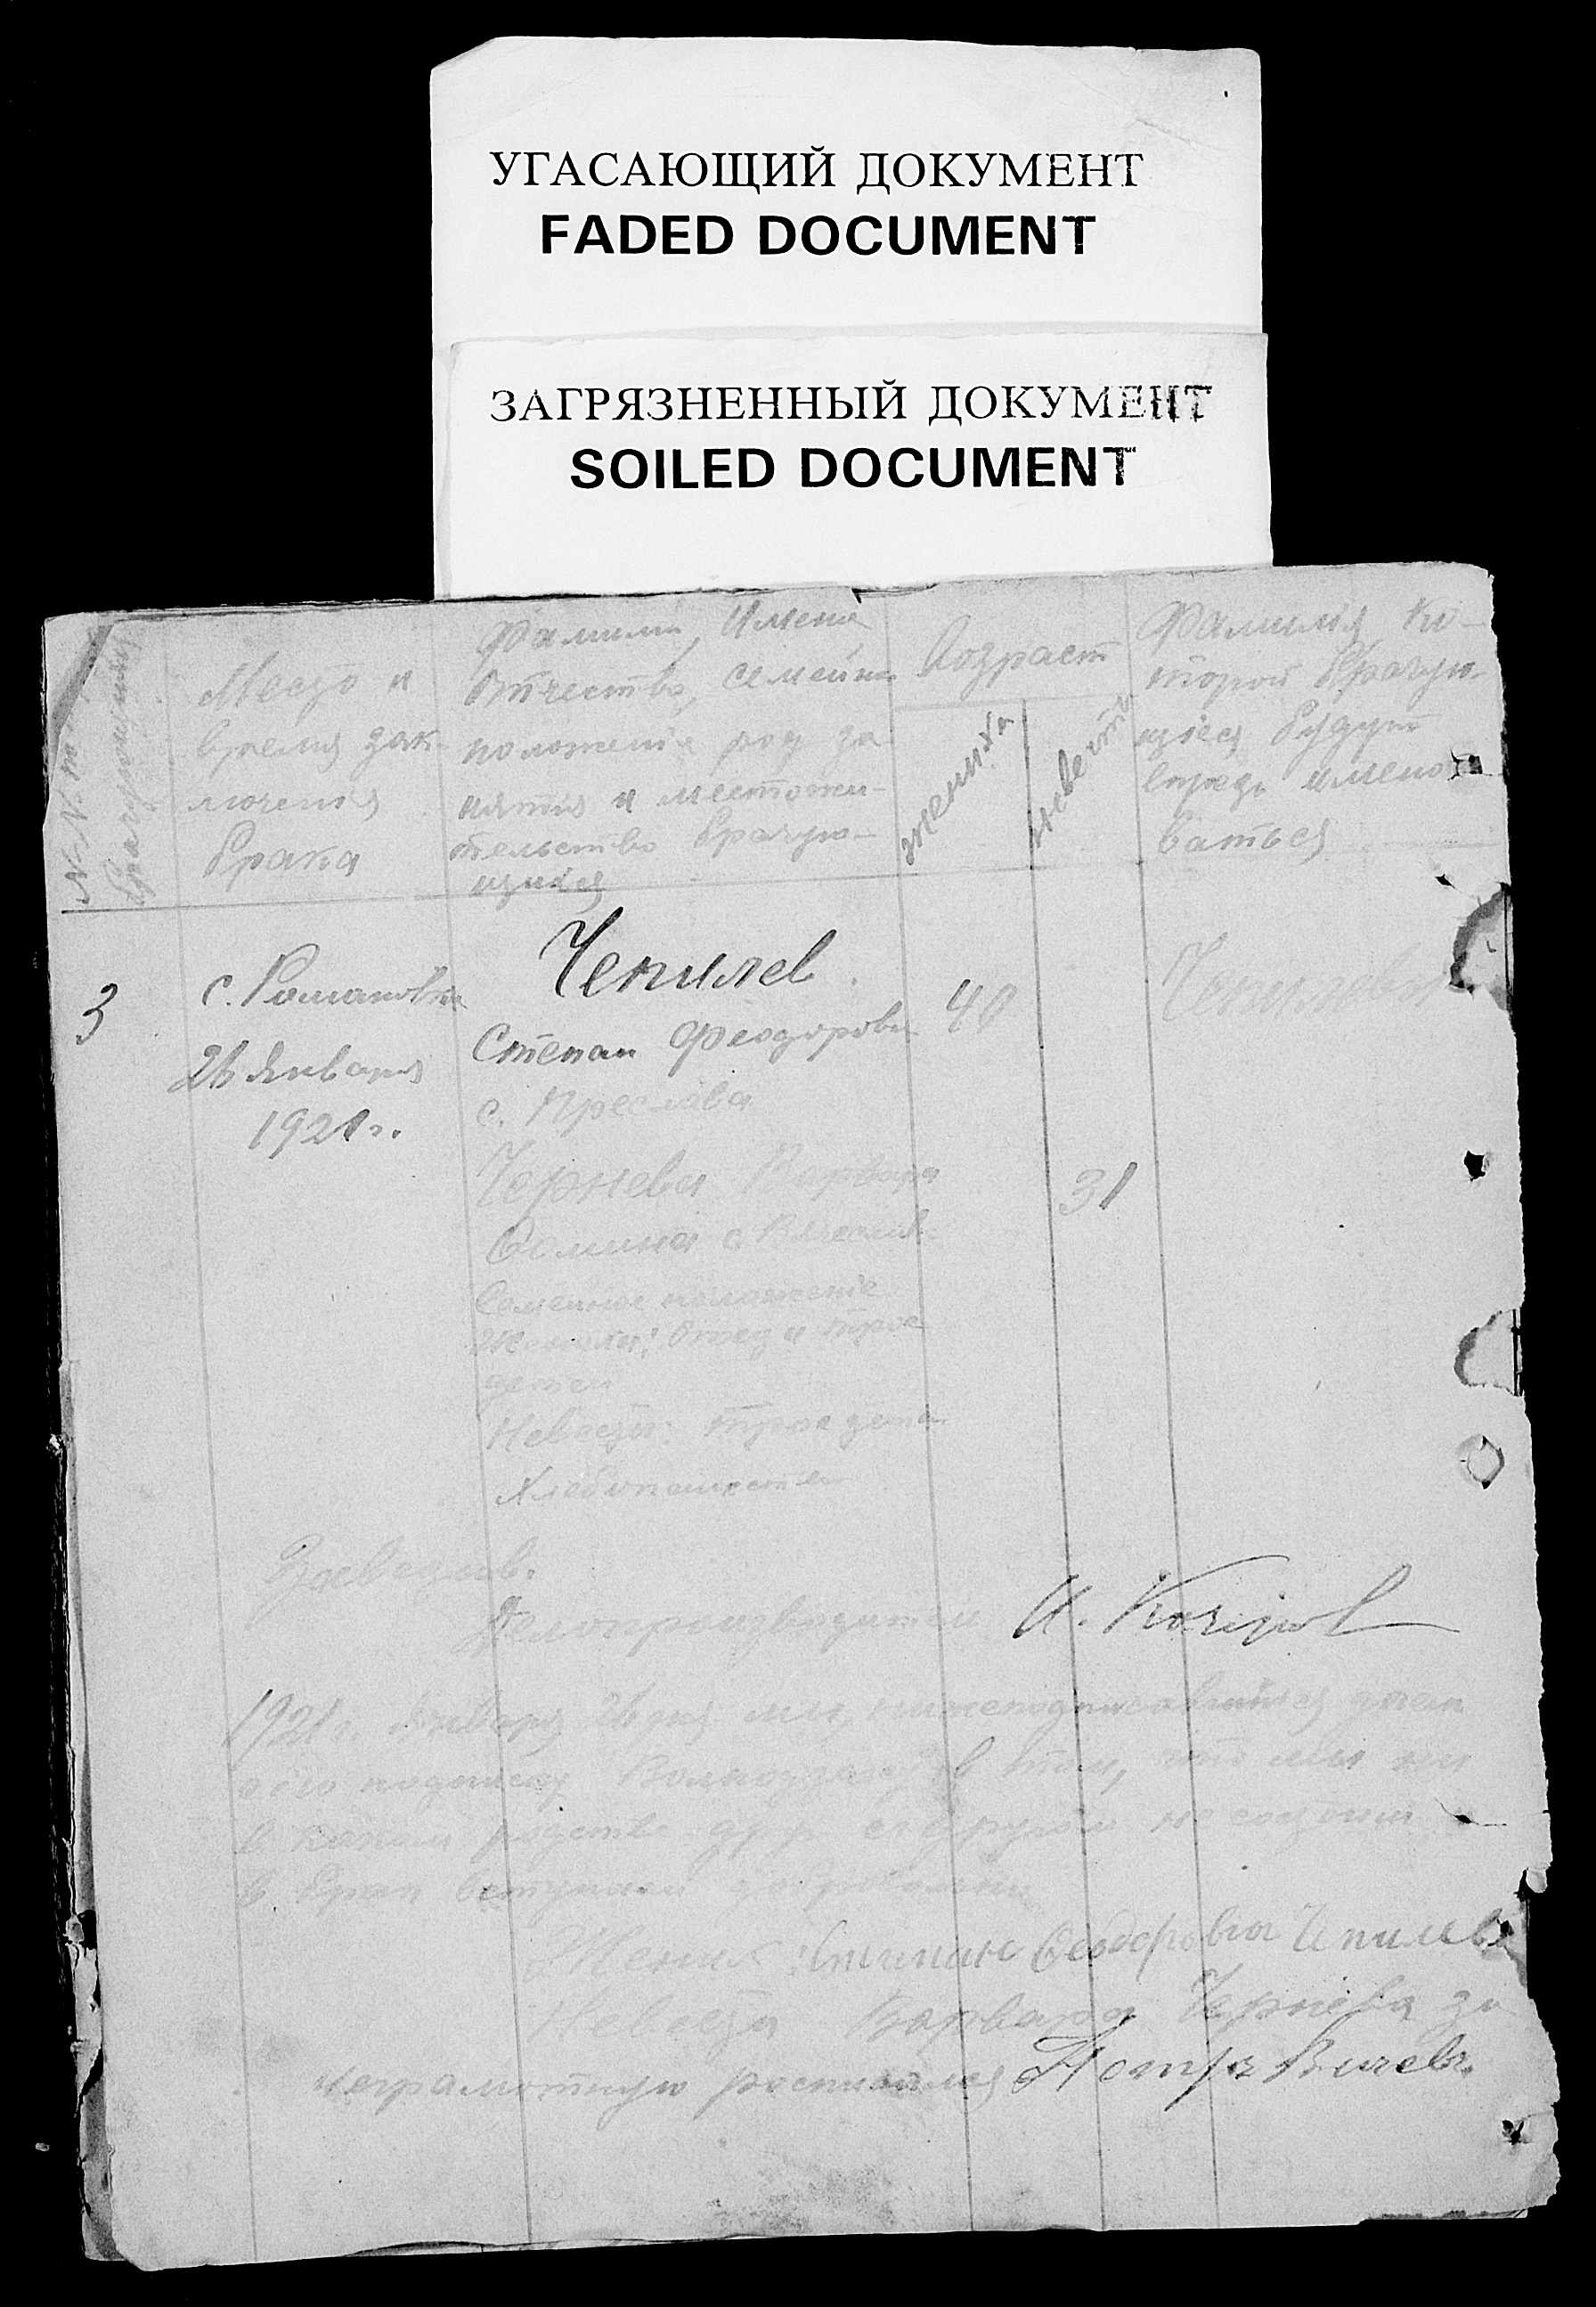 УГАСАЮЩИЙ ДОКУМЕНТ
FADED DOCUMENT
ЗАГРЯЗНЕННЫЙ ДОКУМЕНТ
SOILED DOCUMENT
№№ по
брачующихся
Место и
время зак-
лючения
брака
Фамилия, Имена
Отчества, семейн.
положение род за-
нятия и местожи-
тельство брачую-
щихся
Возраст
жениха
невесты
Фамилия, ко-
торой брачую-
щиеся будут
впредь имено
ваться
3
с. Романовка
26 Января
1921 г.
Чепилев
Степан Феодоров
с. Преслава
40
Чепилевы
Чернева Варвара
31
Семейное положение
Жениха: Отец и трое
детей
Невесты: трое детей
Хлебопашество
Заведыв.
Делопроизводитель
1921 г. Января 26 дня мы, нижеподписавшийся даем
сию подписку в том, что мы ни
в каком родстве друг с другом не состоим
в брак вступаем
Жених: Степан Феодорович Чепилев
Невеста Варвара Чернева за
неграмотную росписался